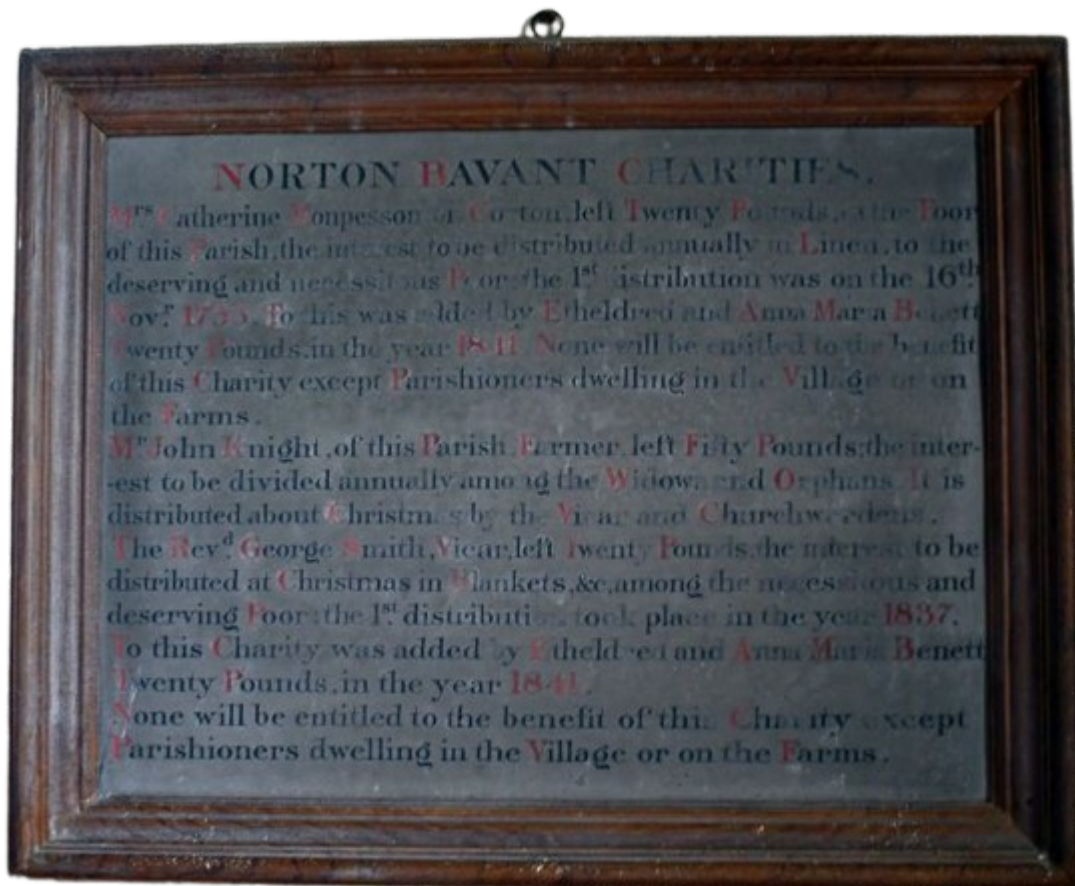 NORTON BAVANT CHARITIES.
Mrs Catherine Monpesson of Corton, left Twenty Pounds, to the Poor
of this Parish, the interest to be distributed annually in Linen, to the
deserving and necessitous Poor: the 1st distribution was on the 16th
Novr. To this was added by Etheldred and Anna Maria Benett
Twenty Pounds, in the year 1841. None will be entitled to the benefit
of this Charity except Parishioners dwelling in the Village or on
the Farms.
Mr John Knight, of this Parish, Farmer, left Fifty Pounds; the inter-
-est to be divided annually among the Widows and Orphans. It is
distributed about Christmas by the Vicar and Churchwardens.
The Revd. George Smith, Vicar, left Twenty Pounds, the interest to be
distributed at Christmas in Blankets, &c, among the necessitous and
deserving Poor: the 1st distribution took place in the year 1837.
To this Charity was added by Etheldred and Anna Maria Benett
Twenty Pounds, in the year 1841.
None will be entitled to the benefit of this Charity except
Parishioners dwelling in the Village or on the Farms.